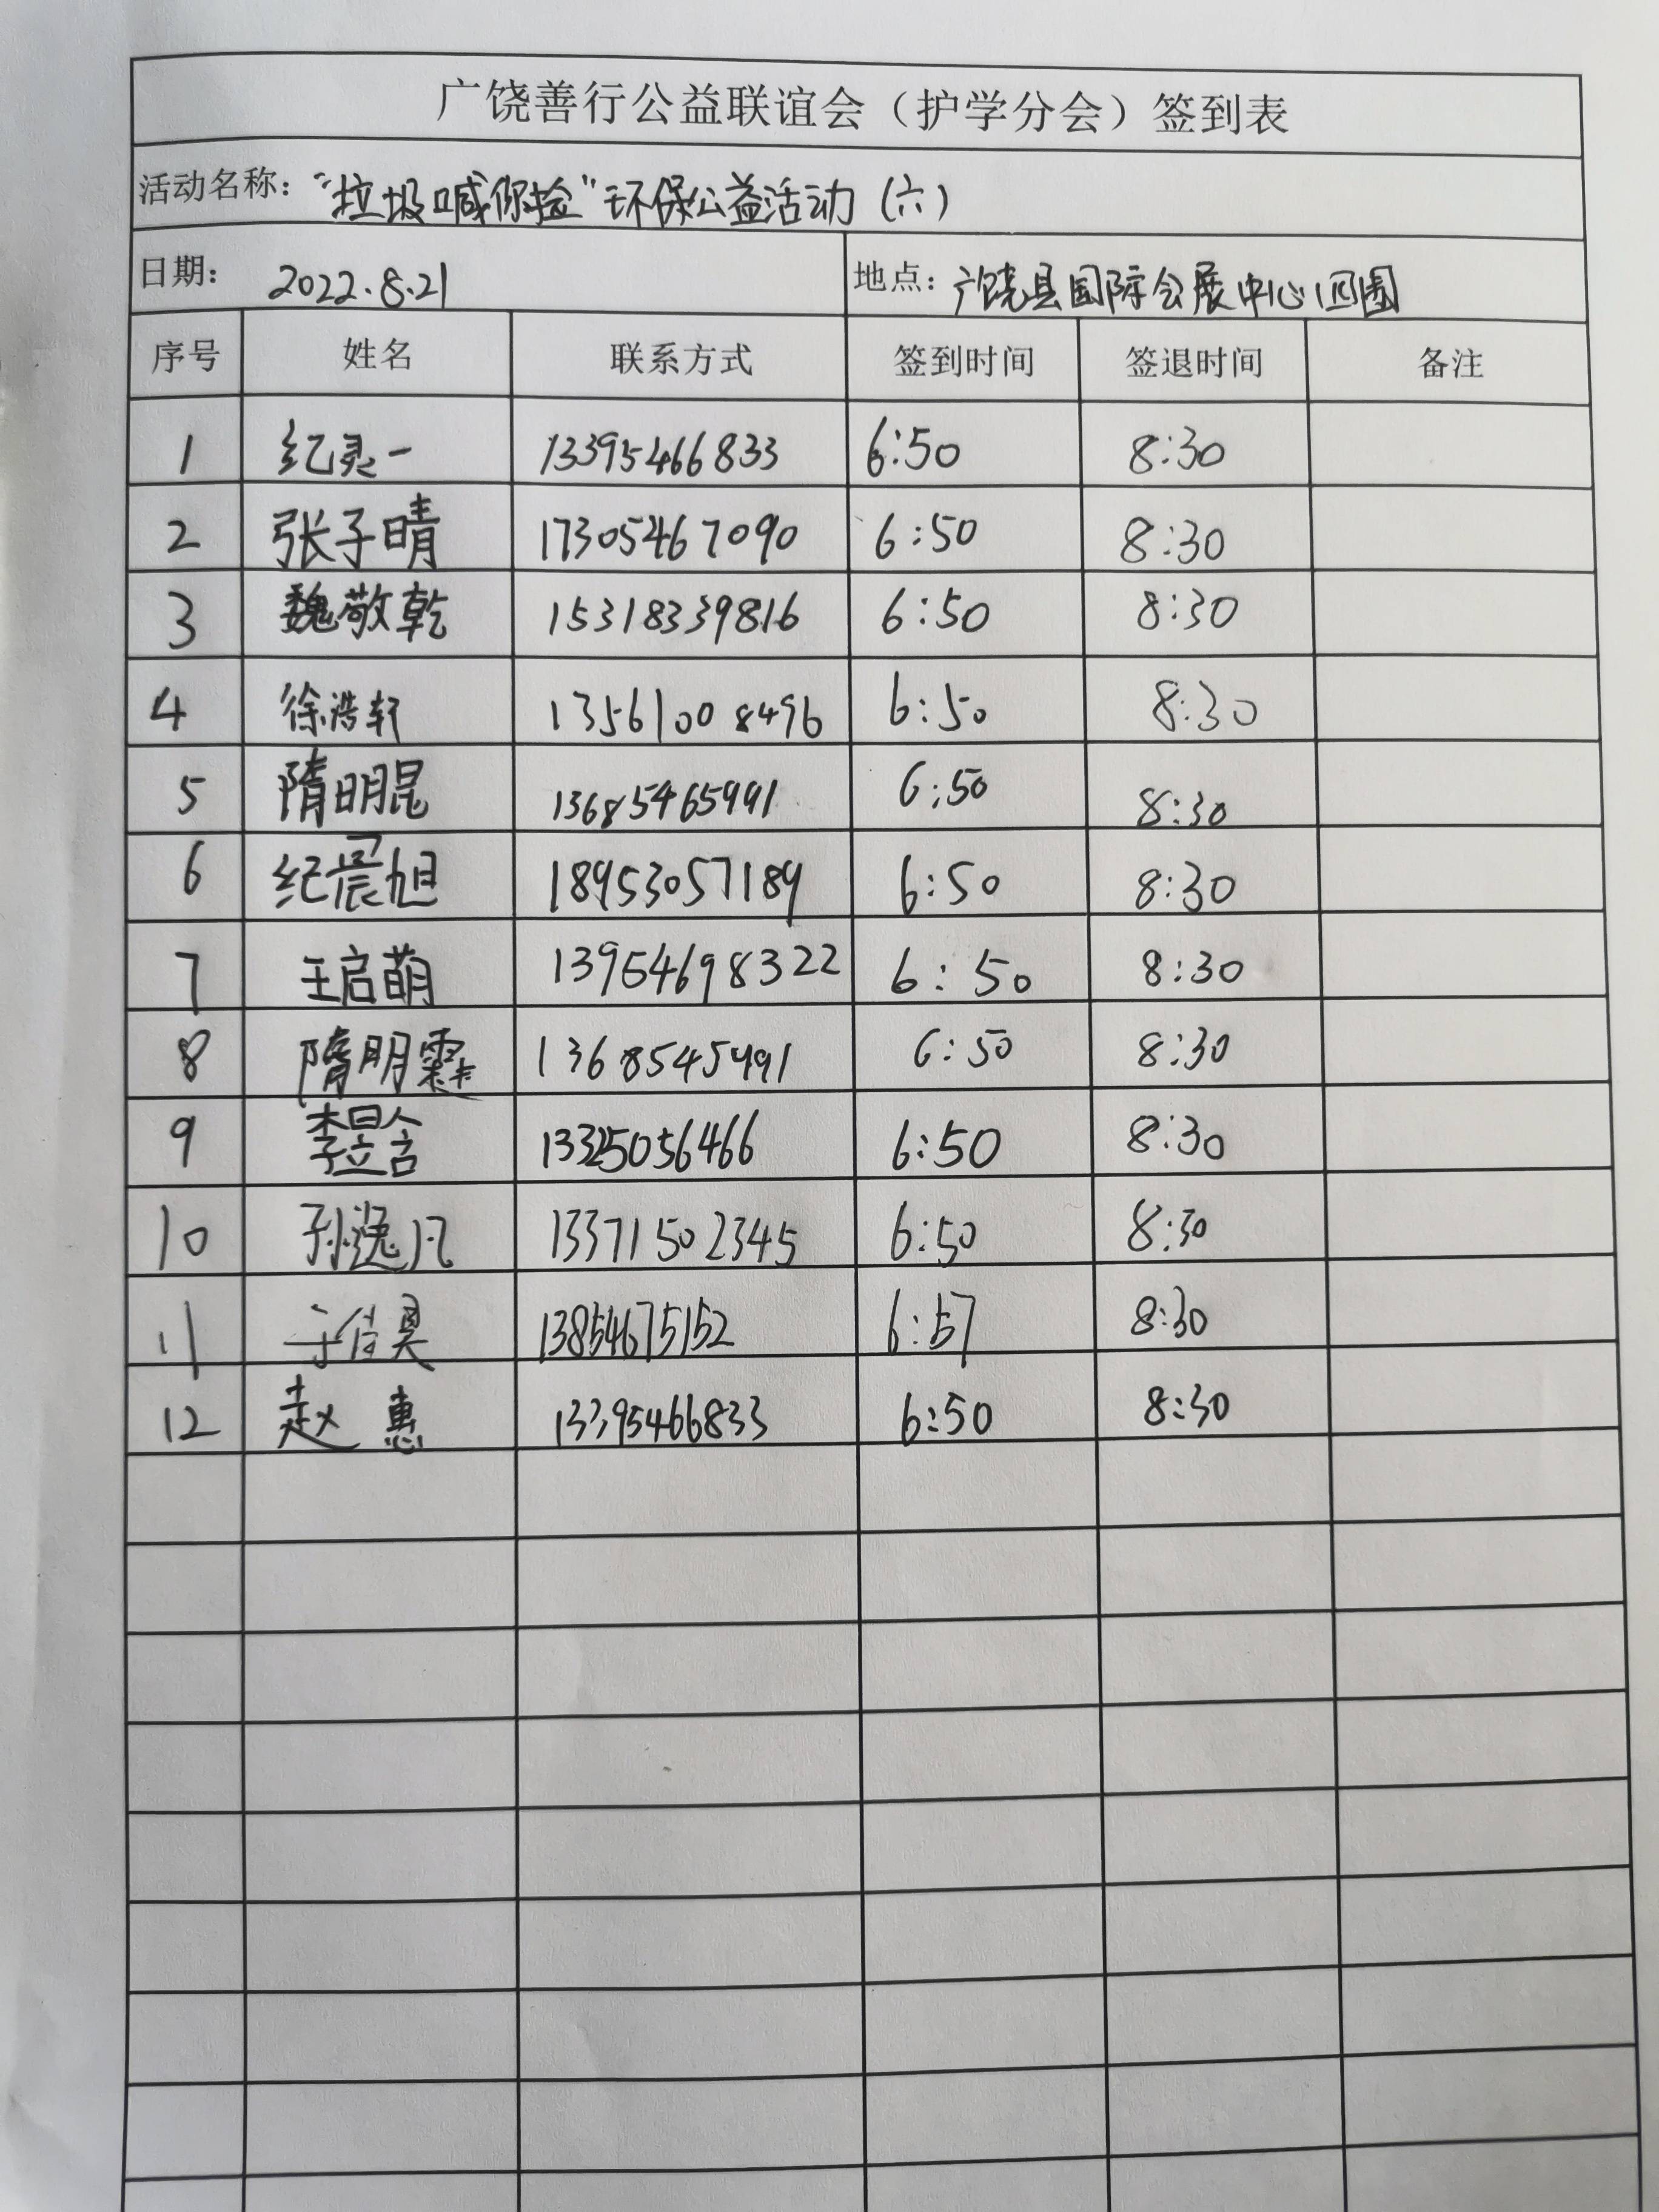 广饶善行公益联谊会（护学分会）签到表
活动名称：“垃圾喊你捡”环保公益活动（六）
日期： 2022.8.21 地点：广饶县国际会展中心四围
序号 姓名 联系方式 签到时间 签退时间 备注
1 纪灵一 13395466833 6:50 8:30
2 张子晴 17305467090 6:50 8:30
3 魏敬乾 15318339816 6:50 8:30
4 徐浩轩 13561008496 6:50 8:30
5 隋明昆 13685465991 6:50 8:30
6 纪晨旭 18953057189 6:50 8:30
7 王启萌 13954698322 6:50 8:30
8 隋明霖 1368545991 6:50 8:30
9 李昱含 13325056466 6:50 8:30
10 孙逸凡 13371502345 6:50 8:30
11 于信昊 13854675152 6:57 8:30
12 赵惠 13395466833 6:50 8:30